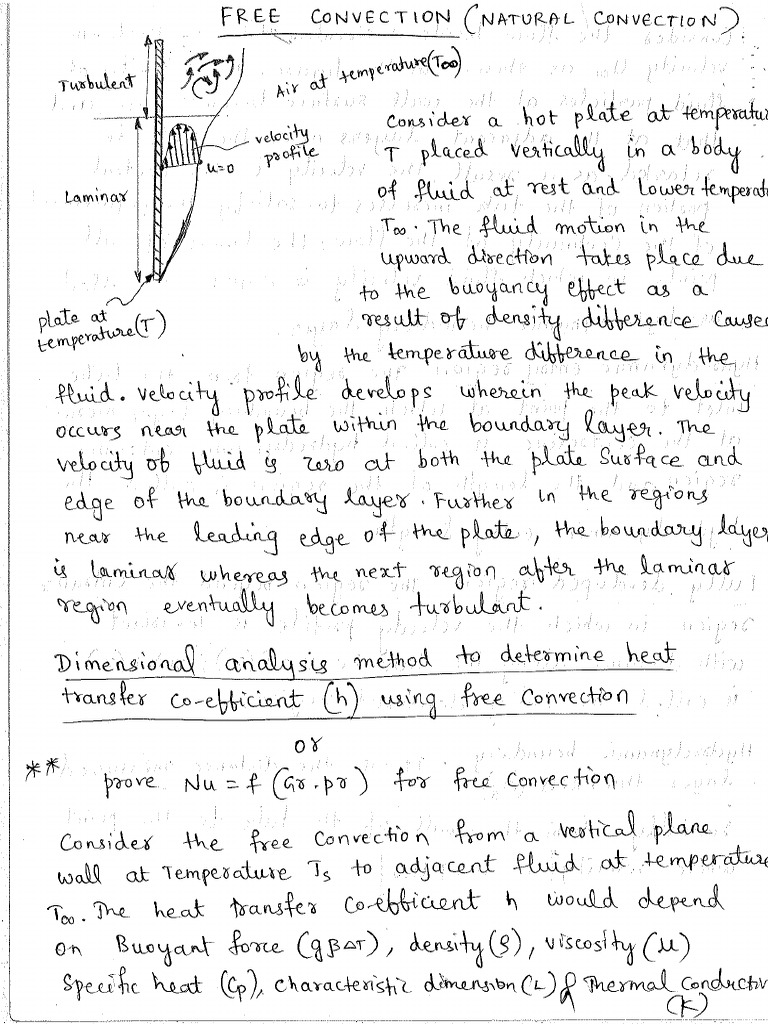 FREE CONVECTION (NATURAL CONVECTION)
Turbulent
Air at temperature (T∞)
velocity
profile
u=0
Laminar
plate at
temperature (T)
Consider a hot plate at temperatu
T placed vertically in a body
of fluid at rest and Lower temperat
T∞. The fluid motion in the
upward direction takes place due
to the buoyancy effect as a
result of density difference Cause
by the temperature difference in the
fluid. Velocity profile develops wherein the peak velocity
occurs near the plate within the boundary layer. The
velocity of fluid is zero at both the plate Surface and
edge of the boundary layer. Further in the regions
near the leading edge of the plate, the boundary layer
is laminar whereas the next region after the laminar
region eventually becomes turbulant.
Dimensional analysis method to determine heat
transfer co-efficient (h) using free Convection
or
** prove Nu = f (Gr.pr) for free Convection
Consider the free Convection from a vertical plane
wall at Temperature Ts to adjacent fluid at temperature
T∞. The heat transfer Co-efficient h would depend
on Buoyant force (gβΔT), density (ρ), viscosity (μ)
Specific heat (Cp), characteristic dimension (L) & Thermal Conductiv
(K)